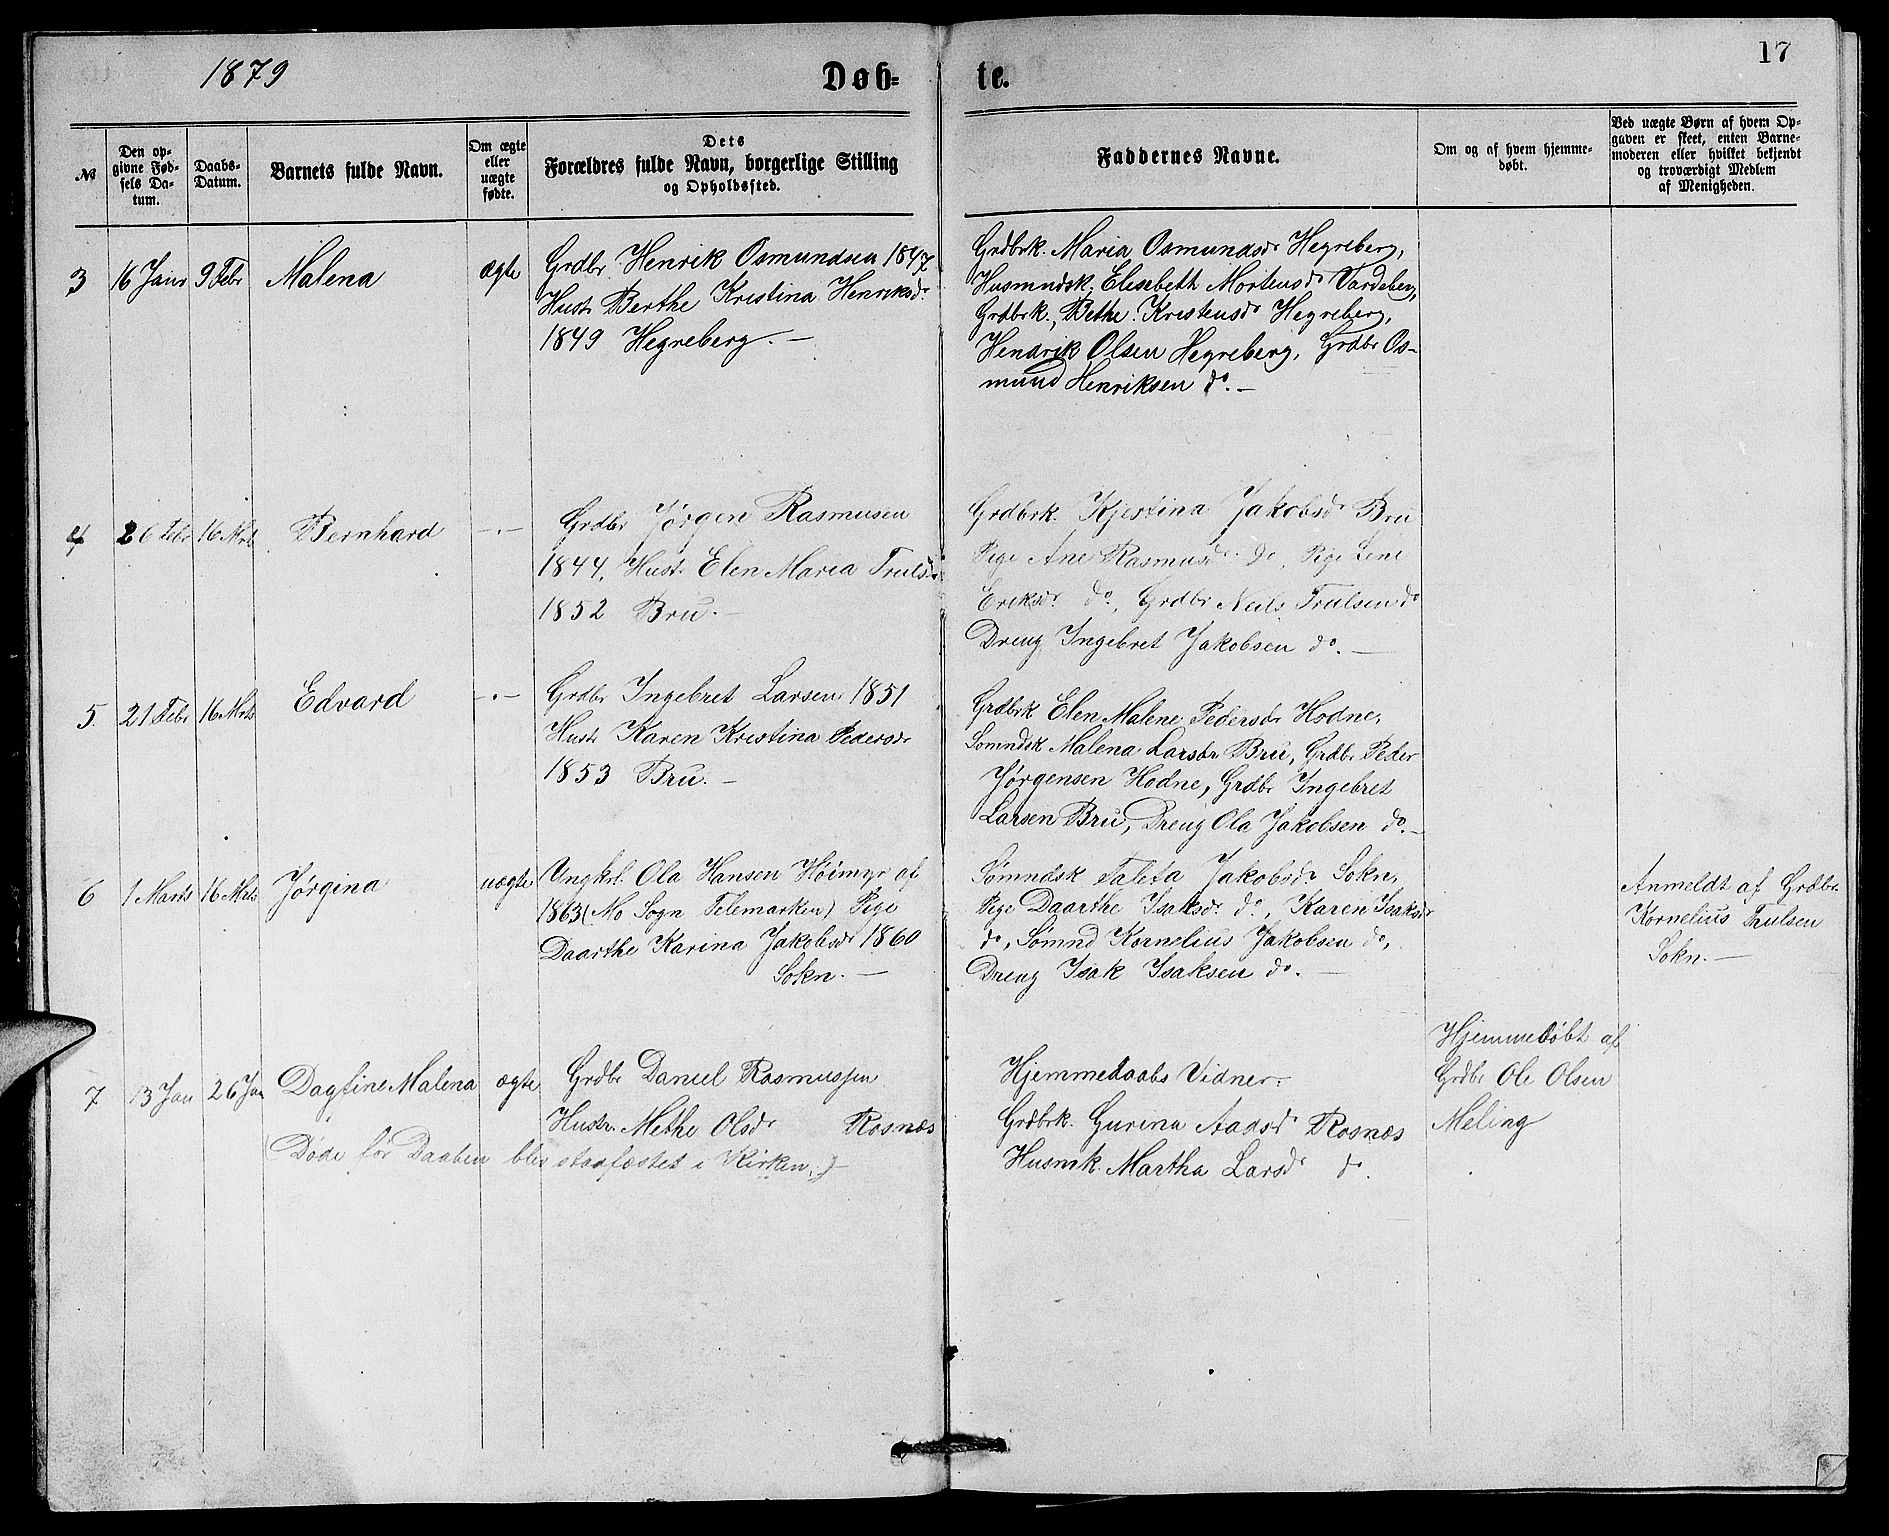 1879
Døb-
te.
17
№
Den op-
givne Fød-
sels Da-
tum.
Daabs-
Datum.
Barnets fulde Navn.
Om ægte
eller
uægte
fødte.
Dets
Forældres fulde Navn, borgerlige Stilling
og Opholdssted.
Faddernes Navne.
Om og af hvem hjemme-
døbt.
Ved uægte Børn af hvem Op-
gaven er skeet, enten Barne-
moderen eller hvilket bekjendt
og troværdigt Medlem
af Menigheden.
3
16 Janr
9 Febr
Malena
ægte
Grdbr Henrik Osmundsen 1847
Hustr Berthe Kristina Henriksdr
1849 Hegreberg. —
Grdbrk. Maria Osmundsdr Hegreberg,
Husmndsk. Elisebeth Mortensdr Vardeberg,
Grdbrk., Bethe Kristensdr Hegreberg,
Hendrik Olsen Hegreberg, Grdbr Os-
mund Henriksen do. —
4
26 Febr
16 Mrts
Bernhard
-.-
Grdbr Jørgen Rasmusen
1844, Hustr Elen Maria Trulsdr
1852 Bru. —
Grdbrk. Kjestina Jakobsdr Bru
Pige Ane Rasmusdr do, Pige Lene
Eriksdr do, Grdbr Neils Trulsen do
Dreng Ingebret Jakobsen do. —
5
21 Febr
16 Mrts
Edvard
-.-
Grdbr Ingebret Larsen 1851
Hustr Karen Kristina Pedersdr
1853 Bru. —
Grdbrk Elen Malene Pedersdr Hodne,
Sømndsk Malena Larsdr Bru, Grdbr Peder
Jørgensen Hodne, Grdbr Ingebret
Larsen Bru, Dreng Ola Jakobsen do. —
6
1 Marts
16 Mrts
Jørgina
uægte
Ungkrl. Ola Hansen Høimyr af
1863 (Mo Sogn Telemarken) Pige
Daarthe Karina Jakobsdr 1860
Sokn. —
Sømndsk Taleta Jakobsdr Sokn,
Pige Daarthe Isaksdr do, Karen Isaksdr
do, Sømnd Kornelius Jakobsen do,
Dreng Isak Isaksen do. —
Anmeldt af Grdbr.
Kornelius Trulsen
Sokn. —
7
13 Jan
26 Jan
Dagfine Malena
ægte
Grdbr Daniel Rasmussen
Hustr. Methe Olsdr Rosnæs
(Døde før Daaben blev stadfæstet i Kirken.) —
Hjemmedaabs Vidner:
Grdbrk. Gurina Aadsdr Rosnæs
Husmk. Martha Larsdr do.
Hjemmedøbt af
Grdbr Ole Olsen
Meling